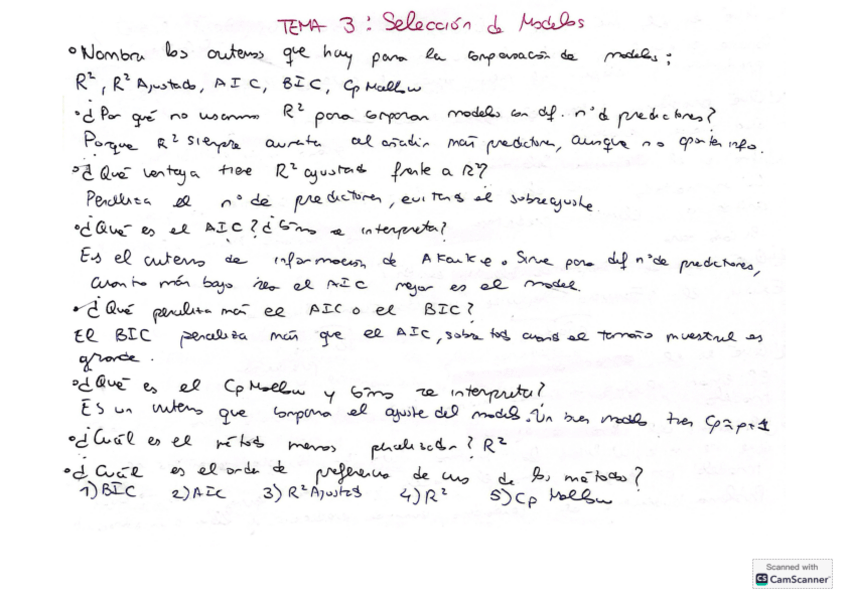 TEMA 3: Selección de Modelos
Nombra los criterios que hay para la comparación de modelos:
R², R² Ajustado, AIC, BIC, Cp Mallow
¿Por qué no usamos R² para comparar modelos con dif. nº de predictores?
Porque R² siempre aumenta al añadir más predictores, aunque no aporten info.
¿Qué ventaja tiene R² ajustado frente a R²?
Penaliza el nº de predictores, evitando el sobreajuste.
¿Qué es el AIC? ¿Cómo se interpreta?
Es el criterio de información de Akaike. Sirve para dif nº de predictores,
cuanto más bajo sea el AIC mejor es el modelo.
¿Qué penaliza más el AIC o el BIC?
El BIC penaliza más que el AIC, sobre todo cuando el tamaño muestral es
grande.
¿Qué es el Cp Mallow y cómo se interpreta?
Es un criterio que compara el ajuste del modelo. Un buen modelo tiene Cp≈p+1
¿Cuál es el método menos penalizador? R²
¿Cuál es el orden de preferencia de uso de los métodos?
1) BIC 2) AIC 3) R² Ajustado 4) R² 5) Cp Mallow
Scanned with
CS CamScanner